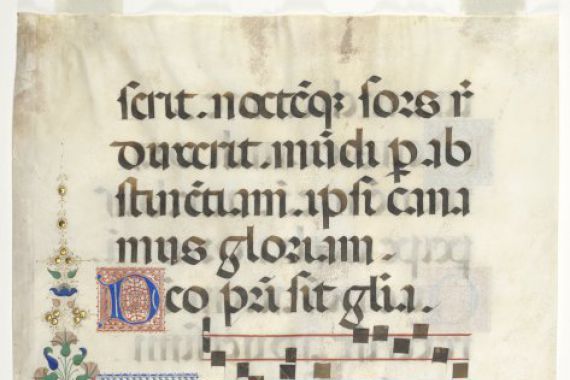 ſerit. noctēqꝫ ſors r̄
duxerit. mūdi ꝑ ab
ſtinētiam. ipſi cāna
mus gloriam.
Deo pr̄i ſit gl̄ia.